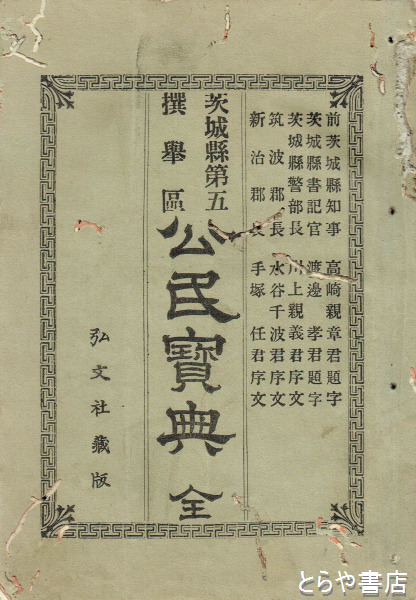 前茨城縣知事　高崎親章君題字
茨城縣書記官　渡邊　孝君題字
茨城縣警部長　川上親義君序文
筑波郡長　水谷千波君序文
新治郡長　手塚　任君序文
茨城縣第五
撰舉區
公民寶典　全
弘文社藏版
とらや書店